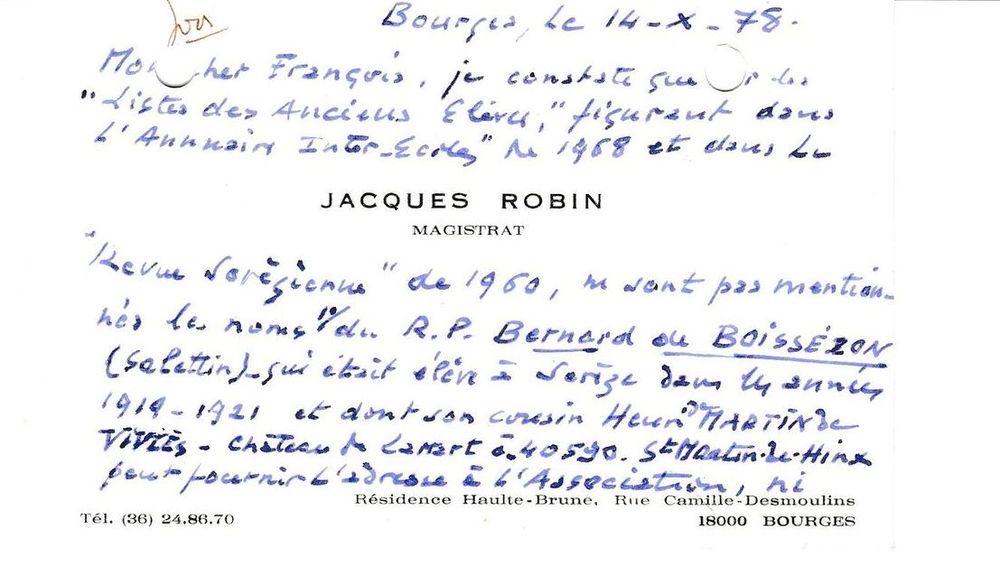 Bourges, le 14-X-78.
Mon cher François, je constate que sur les
"Listes des Anciens Elèves," figurant dans
L'Annuaire Inter-Ecoles" de 1968 et dans la
JACQUES ROBIN
MAGISTRAT
"Revue Sorézienne" de 1960, ne sont pas mention-
nés les noms 1°/ du R.P. Bernard de BOISSÉZON
(Salettin)-qui était élève à Sorèze dans les années
1919-1921 et dont son cousin Henri MARTIN de
VIVIÈS - Château de à 40590. St Martin-de-Hinx
peut fournir l'adresse à l'Association, ni
Résidence Haulte-Brune, Rue Camille-Desmoulins
Tél. (36) 24.86.70
18000 BOURGES